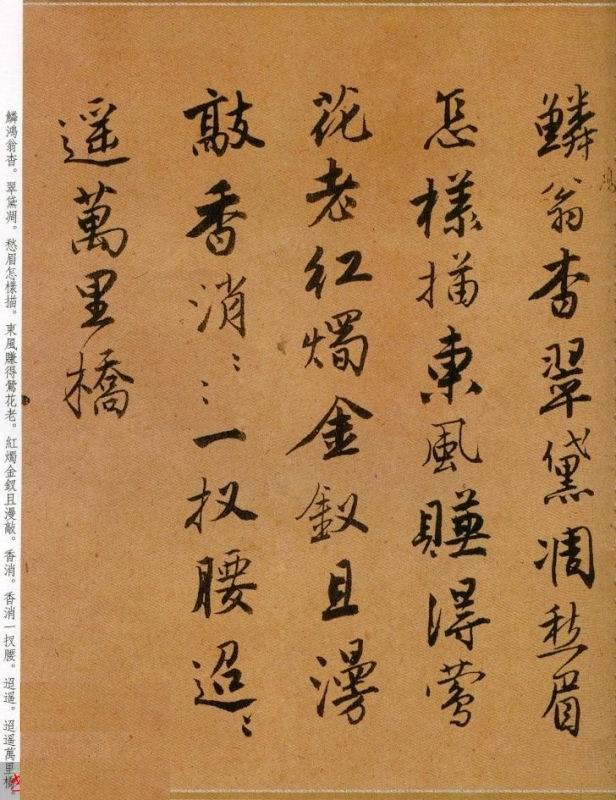 鱗翁杳翠黛凋愁眉
怎樣描東風賺得鶯
花老紅燭金釵且漫
敲香消〻〻一扠腰迢〻
遥萬里橋
鱗鴻翁杳。翠黛凋。愁眉怎樣描。東風賺得鶯花老。紅燭金釵且漫敲。香消。香消一扠腰。迢遥。迢遥萬里橋